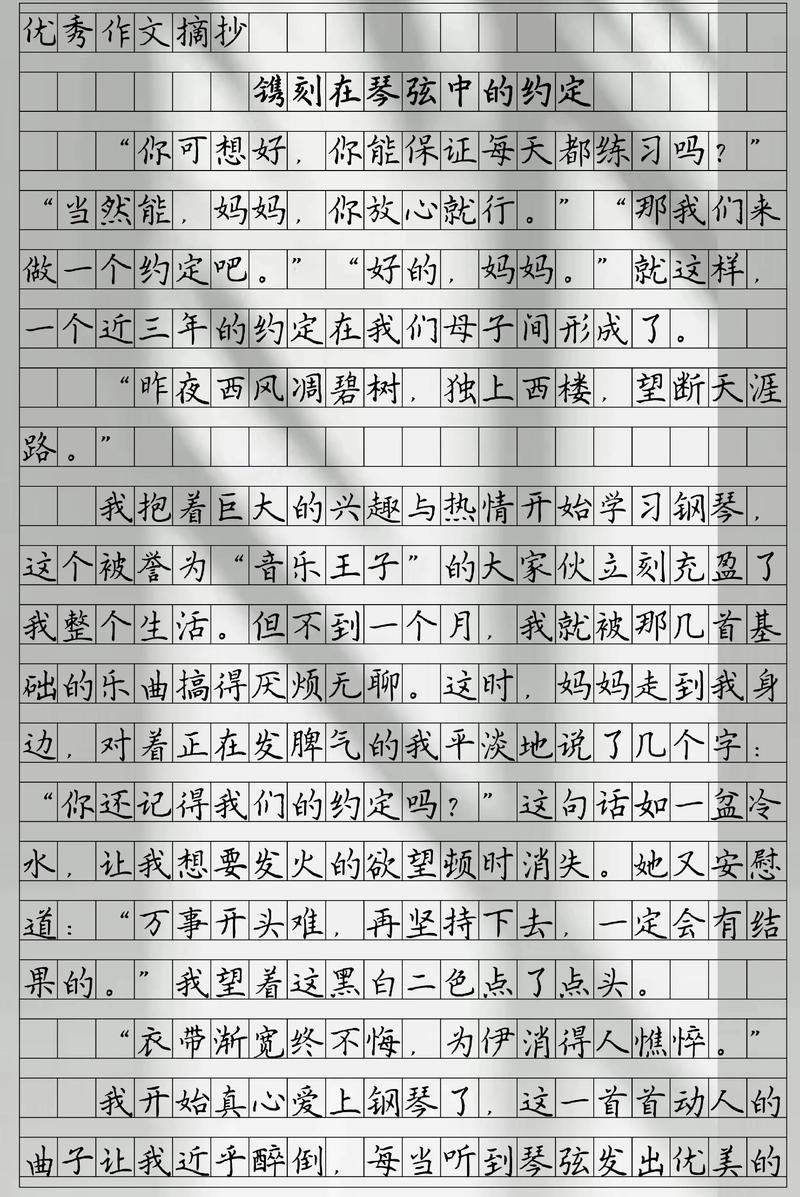 优秀作文摘抄
镌刻在琴弦中的约定
“你可想好，你能保证每天都练习吗？”
“当然能，妈妈，你放心就行。”“那我们来
做一个约定吧。”“好的，妈妈。”就这样，
一个近三年的约定在我们母子间形成了。
“昨夜西风凋碧树，独上西楼，望断天涯
路。”
我抱着巨大的兴趣与热情开始学习钢琴，
这个被誉为“音乐王子”的大家伙立刻充盈了
我整个生活。但不到一个月，我就被那几首基
础的乐曲搞得厌烦无聊。这时，妈妈走到我身
边，对着正在发脾气的我平淡地说了几个字：
“你还记得我们的约定吗？”这句话如一盆冷
水，让我想要发火的欲望顿时消失。她又安慰
道：“万事开头难，再坚持下去，一定会有结
果的。”我望着这黑白二色点了点头。
“衣带渐宽终不悔，为伊消得人憔悴。”
我开始真心爱上钢琴了，这一首首动人的
曲子让我近乎醉倒，每当听到琴弦发出优美的